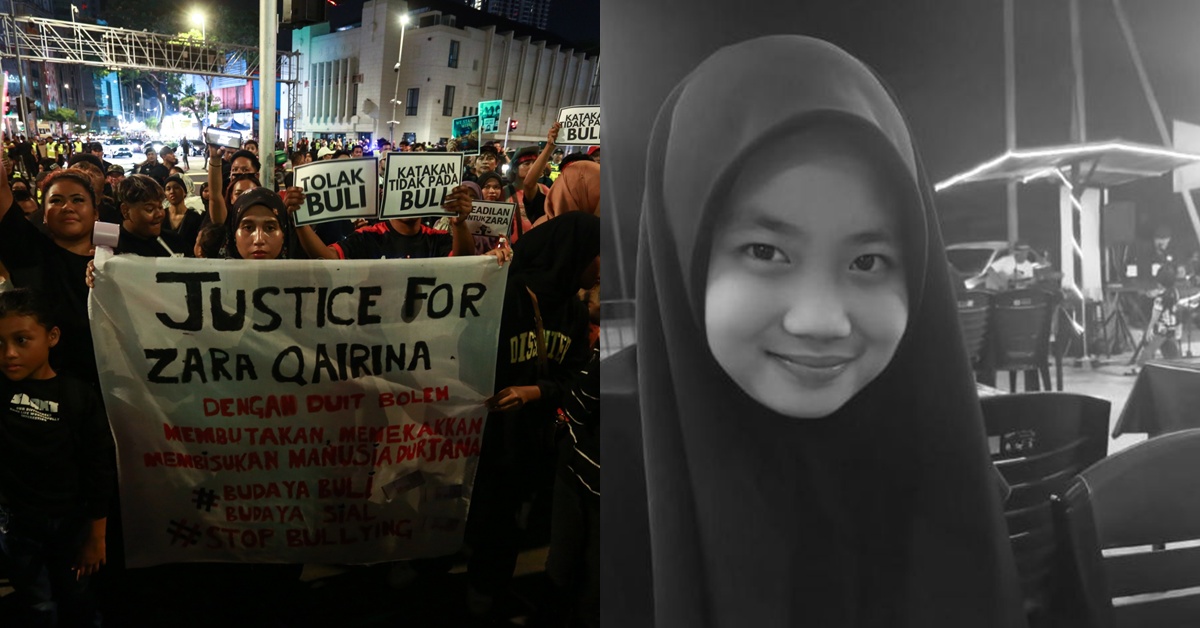 TOLAK
BULI
KATAKAN
TIDAK PADA
BULI
KATAKAN
TIDAK PADA
BULI
KEADILAN
UNTUK ZARA
JUSTICE FOR
ZARA QAIRINA
DENGAN DUIT BOLEH
MEMBUTAKAN, MEMEKAKKAN
MEMBISUKAN MANUSIA DURJANA
#BUDAYA BULI
BUDAYA SIAL
#STOP BULLYING